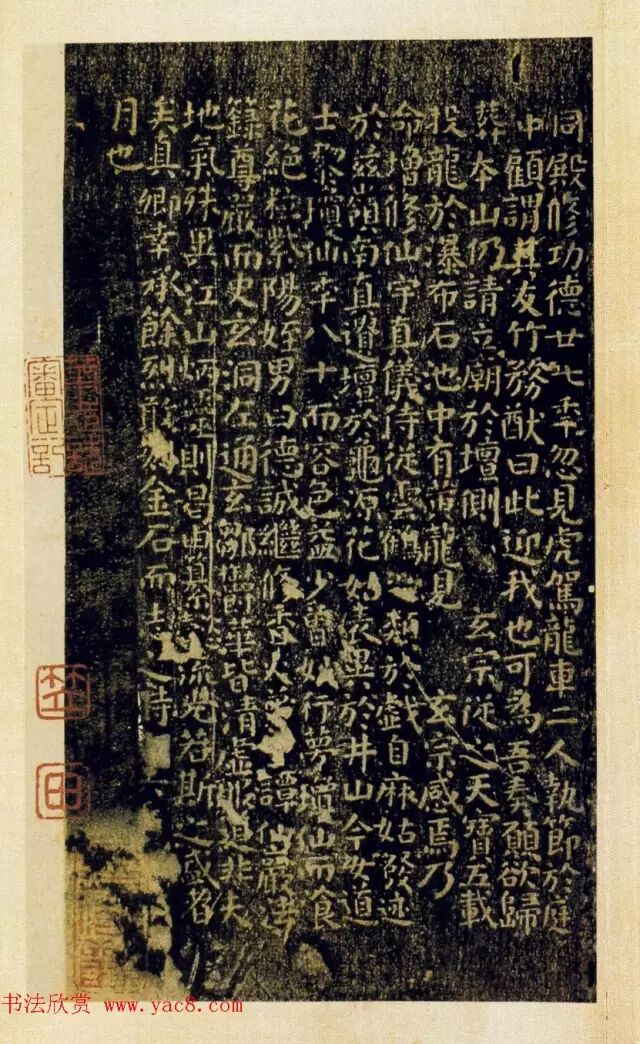 同殿修功德廿七季忽見虎駕龍車二人執節於庭
中顧謂其友竹務猷曰此迎我也可為吾奏願欲歸
葬本山仍請立廟於壇側玄宗從之天寶五載
投龍於瀑布石池中有黃龍見玄宗感焉乃
命增修仙宇真儀侍從雲鶴之類於戲自麻姑發迹
於茲嶺南真遺壇於龜源花姑表異於井山今女道
士黎瓊仙季八十而容色益少曾妙行夢瓊仙而食
花絕粒紫陽姪男曰德誠繼修香火譚仙巖法
籙尊嚴而史玄洞左通玄鄒鬱華皆清虛服道非夫
地氣殊異江山炳靈則曷由纂流光若斯之盛者
矣真卿幸承餘烈敢刻金石而志之時六
月也
书法欣赏 www.yac8.com